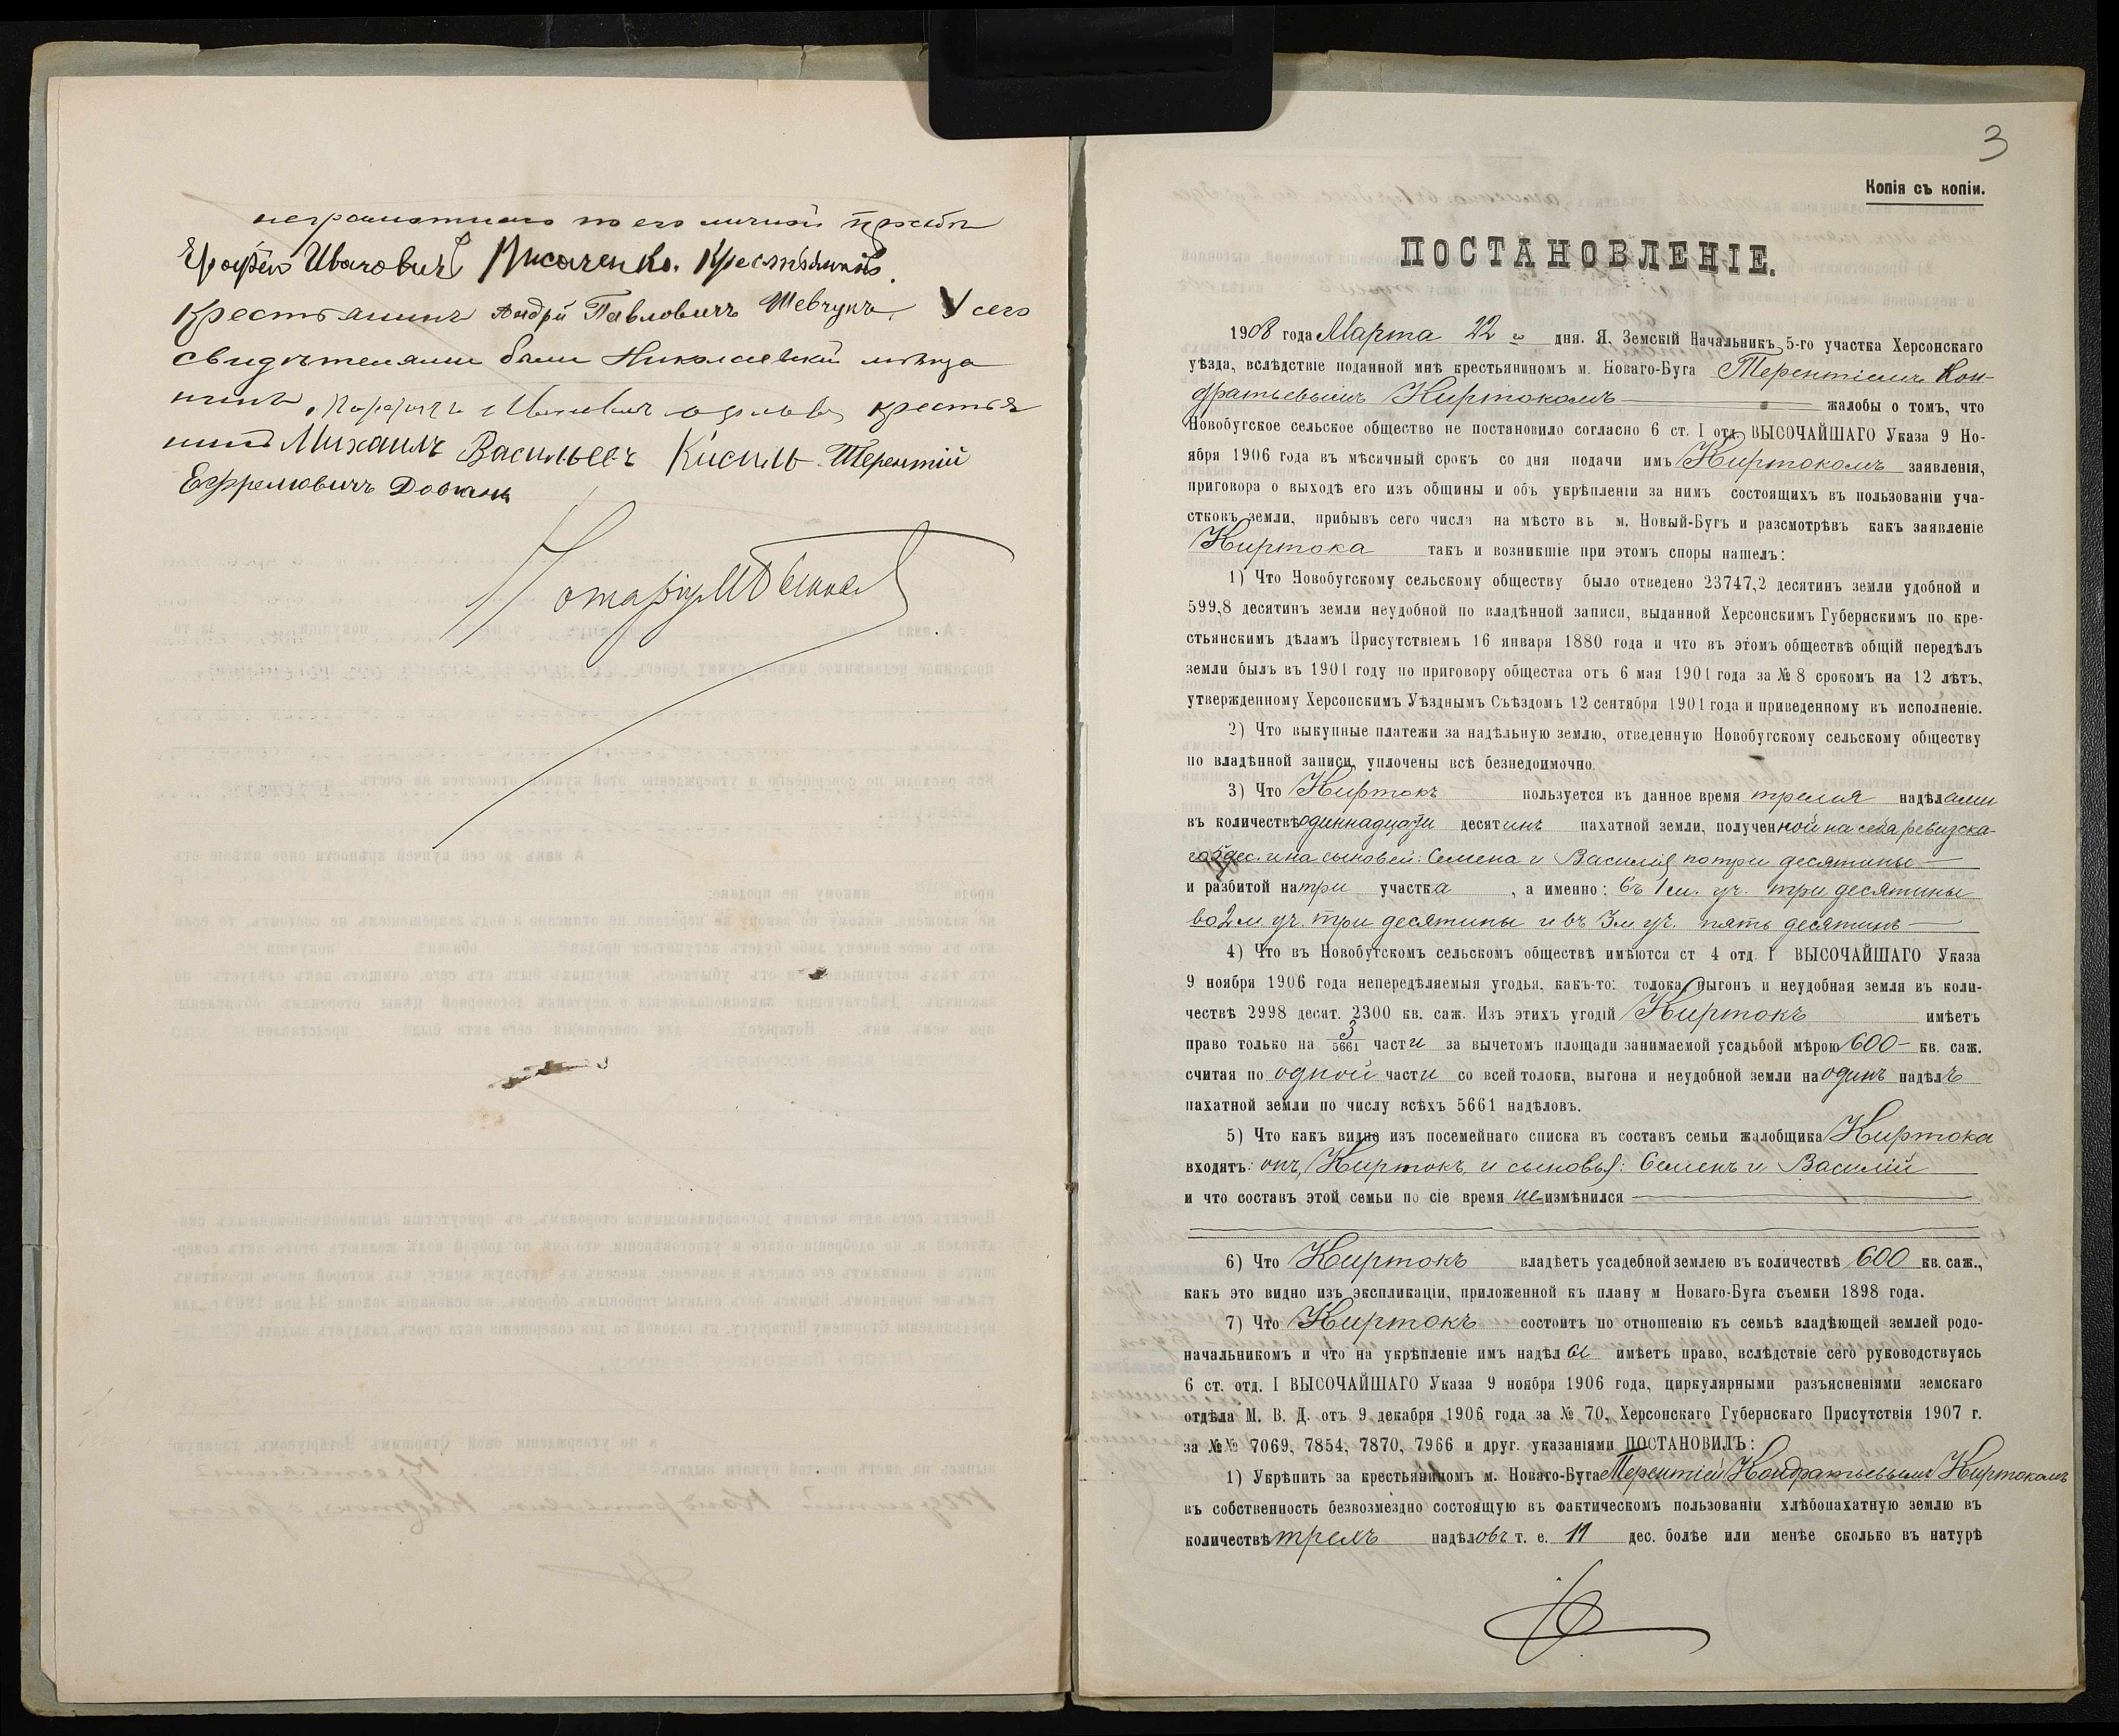 неграмотнаго по его личной просьбѣ
Ерофей Ивановичъ Писаченко. Крестьянинъ.
Крестьянинъ Андрій Павловичъ Шевчукъ. У сего
свидѣтелями были Николаевскій мѣща
нинъ,
крестья
нинъ Михаилъ Васильев Кисиль Терентій
Ефремовичъ Довгань
Нотаріусъ
3
Копія съ копіи.
ПОСТАНОВЛЕНІЕ.
1908 года Марта 22 го дня. Я. Земскій Начальникъ 5-го участка Херсонскаго
уѣзда, вслѣдствіе поданной мнѣ крестьяниномъ м. Новаго-Буга Терентіемъ Кон-
дратьевымъ Киртокомъ жалобы о томъ, что
Новобугское сельское общество не постановило согласно 6 ст. I отд. ВЫСОЧАЙШАГО Указа 9 Но-
ября 1906 года въ мѣсячный срокъ со дня подачи имъ Киртокомъ заявленія,
приговора о выходѣ его изъ общины и объ укрѣпленіи за нимъ состоящихъ въ пользованіи уча-
стковъ земли, прибывъ сего числа на мѣсто въ м. Новый-Бугъ и разсмотрѣвъ какъ заявленіе
Киртока такъ и возникшіе при этомъ споры нашелъ:
1) Что Новобугскому сельскому обществу было отведено 23747,2 десятинъ земли удобной и
599,8 десятинъ земли неудобной по владѣнной записи, выданной Херсонскимъ Губернскимъ по кре-
стьянскимъ дѣламъ Присутствіемъ 16 января 1880 года и что въ этомъ обществѣ общій передѣлъ
земли былъ въ 1901 году по приговору общества отъ 6 мая 1901 года за № 8 срокомъ на 12 лѣтъ,
утвержденному Херсонскимъ Уѣзднымъ Съѣздомъ 12 сентября 1901 года и приведенному въ исполненіе.
2) Что выкупные платежи за надѣльную землю, отведенную Новобугскому сельскому обществу
по владѣнной записи, уплочены всѣ безнедоимочно.
3) Что Киртокъ пользуется въ данное время тремя надѣлами
въ количествѣ одиннадцати десятинъ пахатной земли, полученной на себя ревизска-
го 5 дес. и на сыновей: Семена и Василія по три десятины
и разбитой на три участка, а именно: въ 1 м. уч. три десятины
во 2 м. уч. три десятины и въ 3 м. уч. пять десятинъ
4) Что въ Новобугскомъ сельскомъ обществѣ имѣются ст 4 отд. I ВЫСОЧАЙШАГО Указа
9 ноября 1906 года непередѣляемыя угодья, какъ-то: толока, выгонъ и неудобная земля въ коли-
чествѣ 2998 десят. 2300 кв. саж. Изъ этихъ угодій Киртокъ имѣетъ
право только на 3/5661 части за вычетомъ площади занимаемой усадьбой мѣрою 600 кв. саж.
считая по одной части со всей толоки, выгона и неудобной земли на одинъ надѣлъ
пахатной земли по числу всѣхъ 5661 надѣловъ.
5) Что какъ видно изъ посемейнаго списка въ составъ семьи жалобщика Киртока
входятъ: онъ, Киртокъ, и сыновья: Семенъ и Василій
и что составъ этой семьи по сіе время не измѣнился
6) Что Киртокъ владѣетъ усадебной землею въ количествѣ 600 кв. саж.,
какъ это видно изъ экспликаціи, приложенной къ плану м Новаго-Буга съемки 1898 года.
7) Что Киртокъ состоитъ по отношенію къ семьѣ владѣющей землей родо-
начальникомъ и что на укрѣпленіе имъ надѣла имѣетъ право, вслѣдствіе сего руководствуясь
6 ст. отд. I ВЫСОЧАЙШАГО Указа 9 ноября 1906 года, циркулярными разъясненіями земскаго
отдѣла М. В. Д. отъ 9 декабря 1906 года за № 70, Херсонскаго Губернскаго Присутствія 1907 г.
за №№ 7069, 7854, 7870, 7966 и друг. указаніями ПОСТАНОВИЛЪ:
1) Укрѣпить за крестьяниномъ м. Новаго-Буга Терентіем Кондратьевымъ Киртокомъ
въ собственность безвозмездно состоящую въ фактическомъ пользованіи хлѣбопахатную землю въ
количествѣ трехъ надѣловъ т. е. 11 дес. болѣе или менѣе сколько въ натурѣ